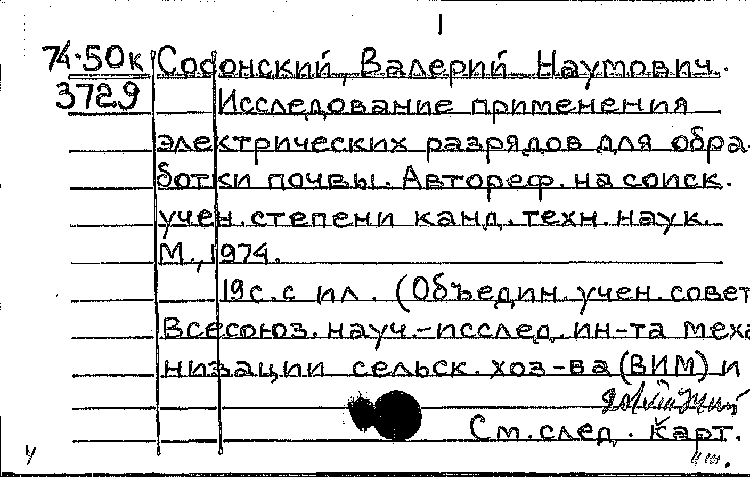 1
74-50к Сосонский, Валерий Наумович.
3729 Исследование применения
электрических разрядов для обра-
ботки почвы. Автореф. на соиск.
учен. степени канд. техн. наук.
М., 1974.
19с. с ил. (Объедин. учен. совет
Всесоюз. науч.-исслед. ин-та меха
низации сельск. хоз-ва (ВИМ) и
См. след. карт.